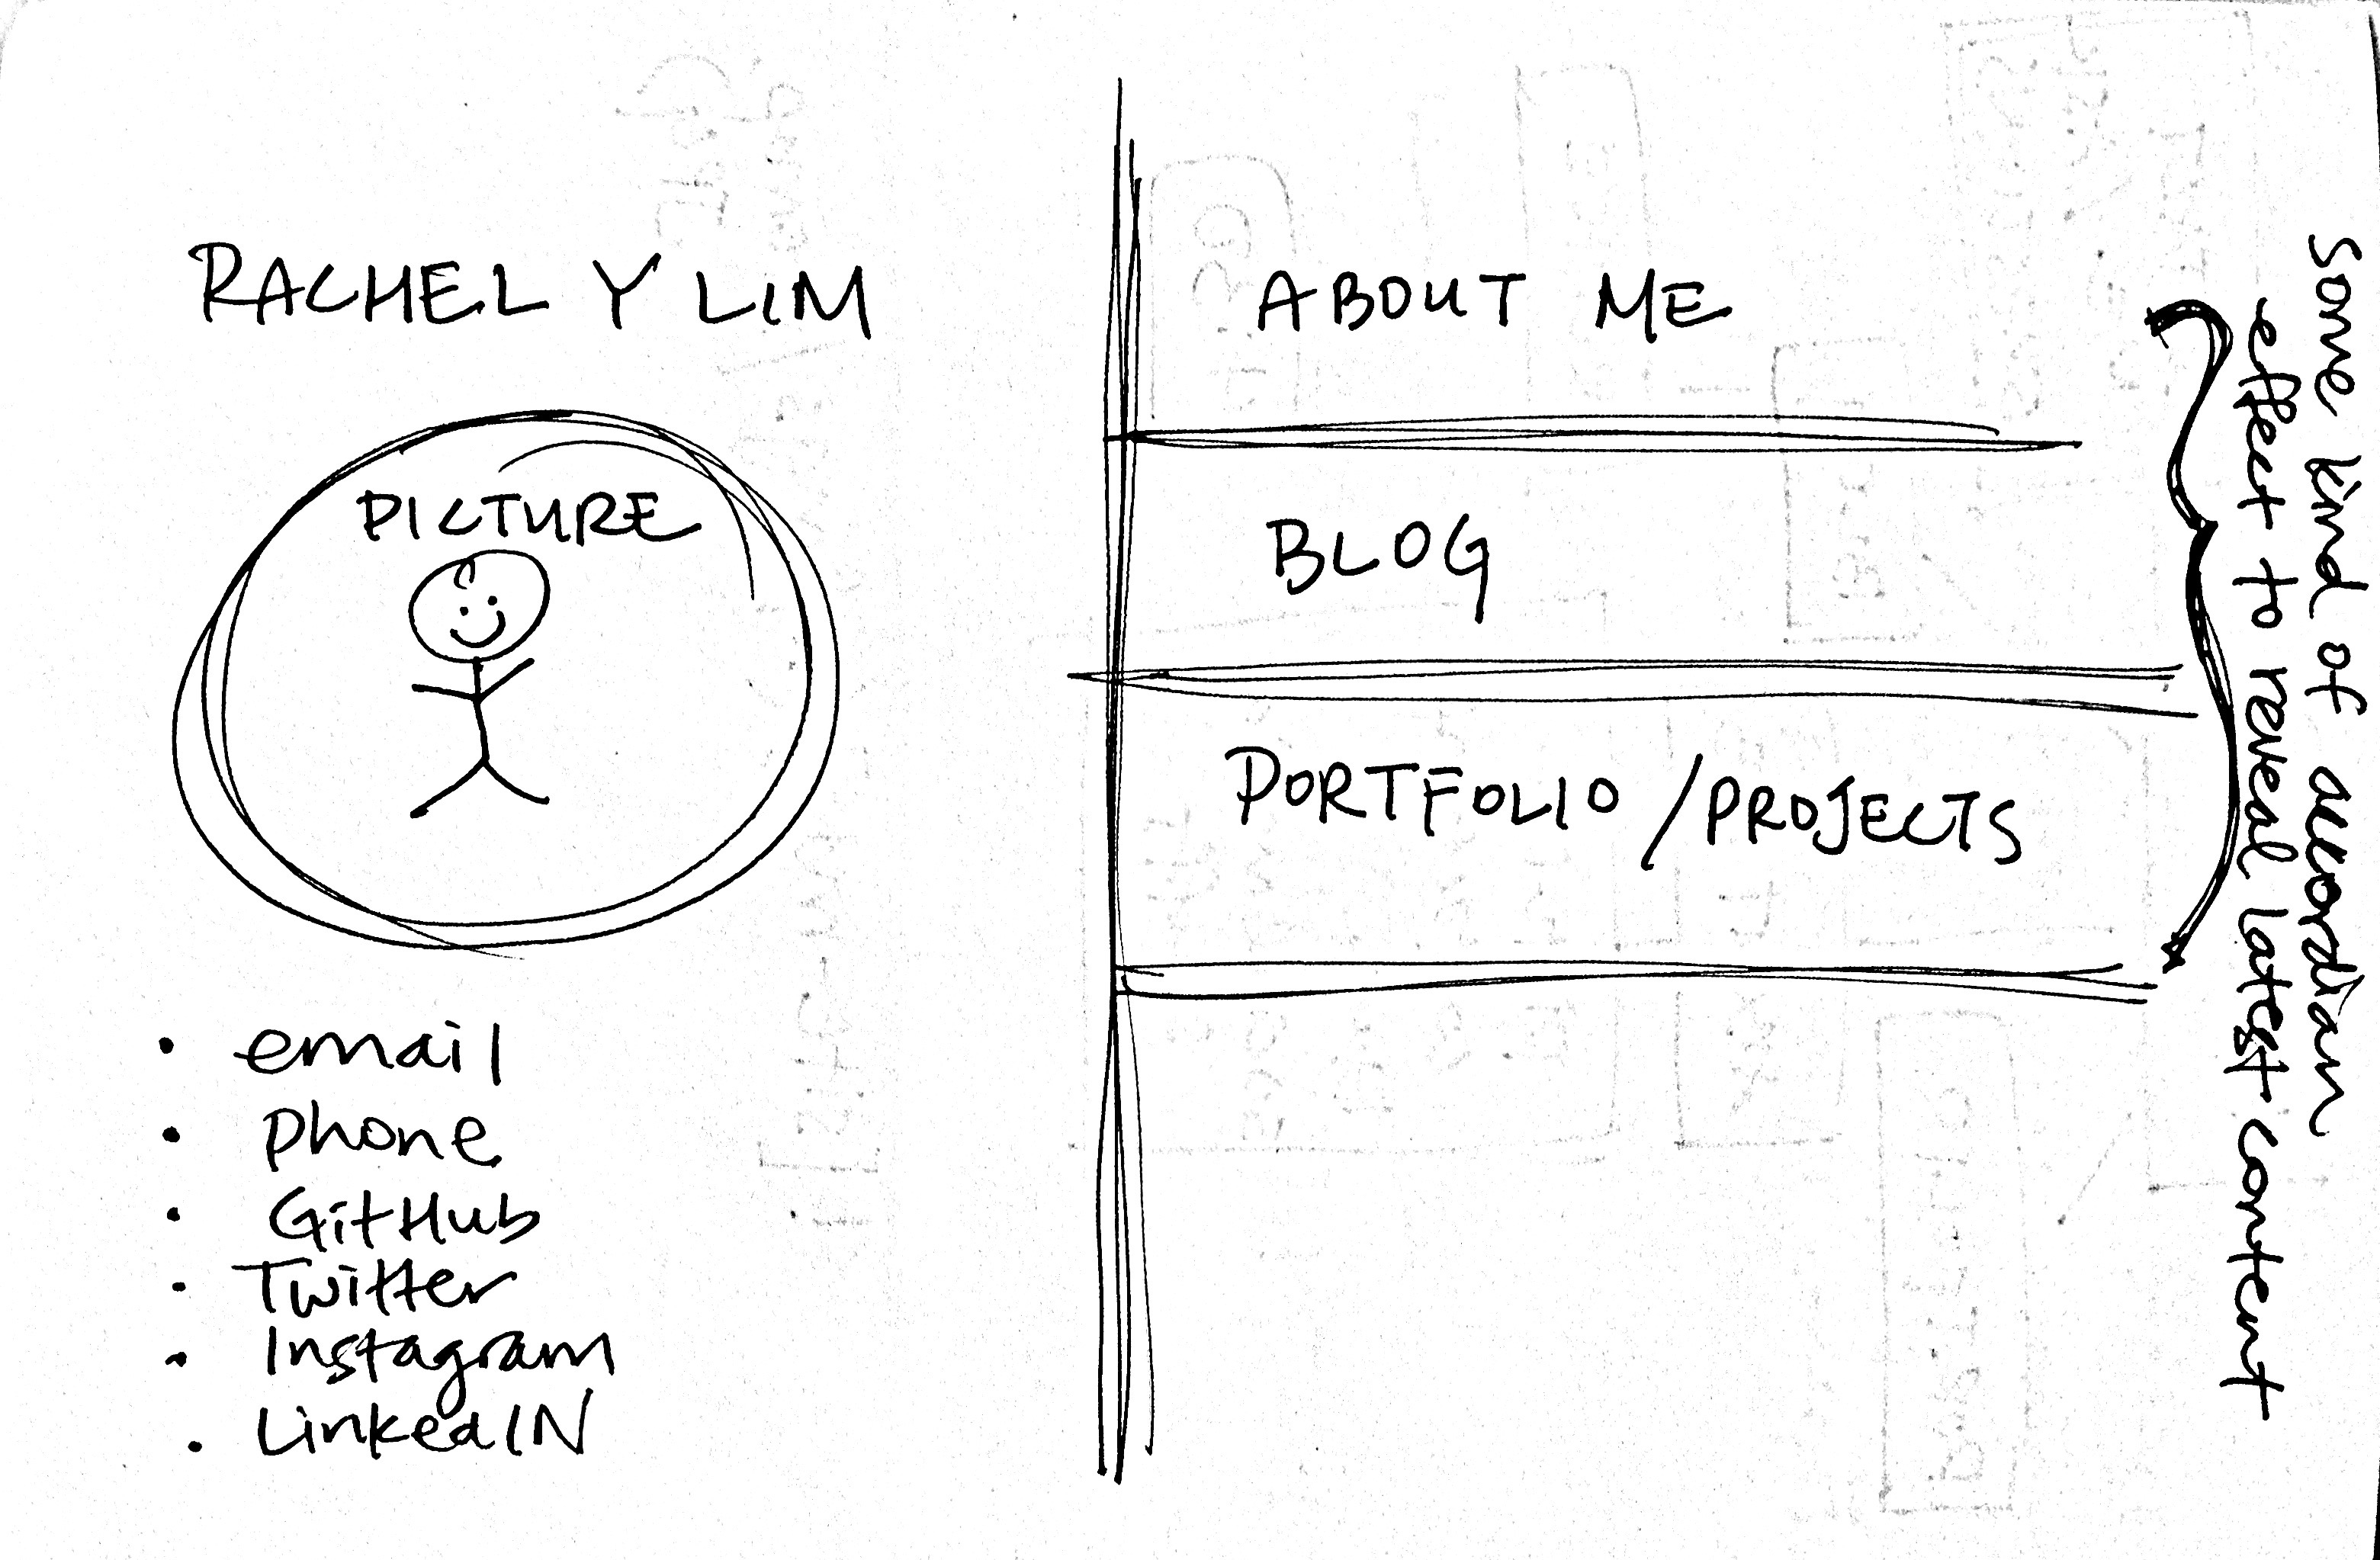 RACHEL Y LIM
PICTURE
• email
• phone
• GitHub
• Twitter
• Instagram
• LinkedIN
ABOUT ME
BLOG
PORTFOLIO / PROJECTS
some kind of accordian
effect to reveal latest content